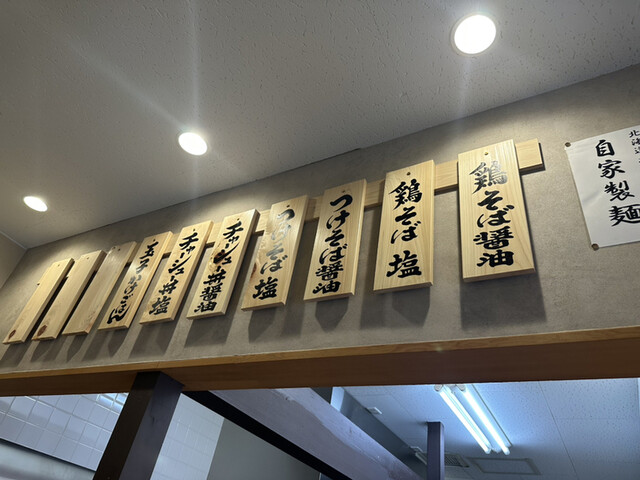 北海道
自家製麺
鶏そば醤油
鶏そば塩
つけそば醤油
つけそば塩
チャーシュー丼醤油
チャーシュー丼塩